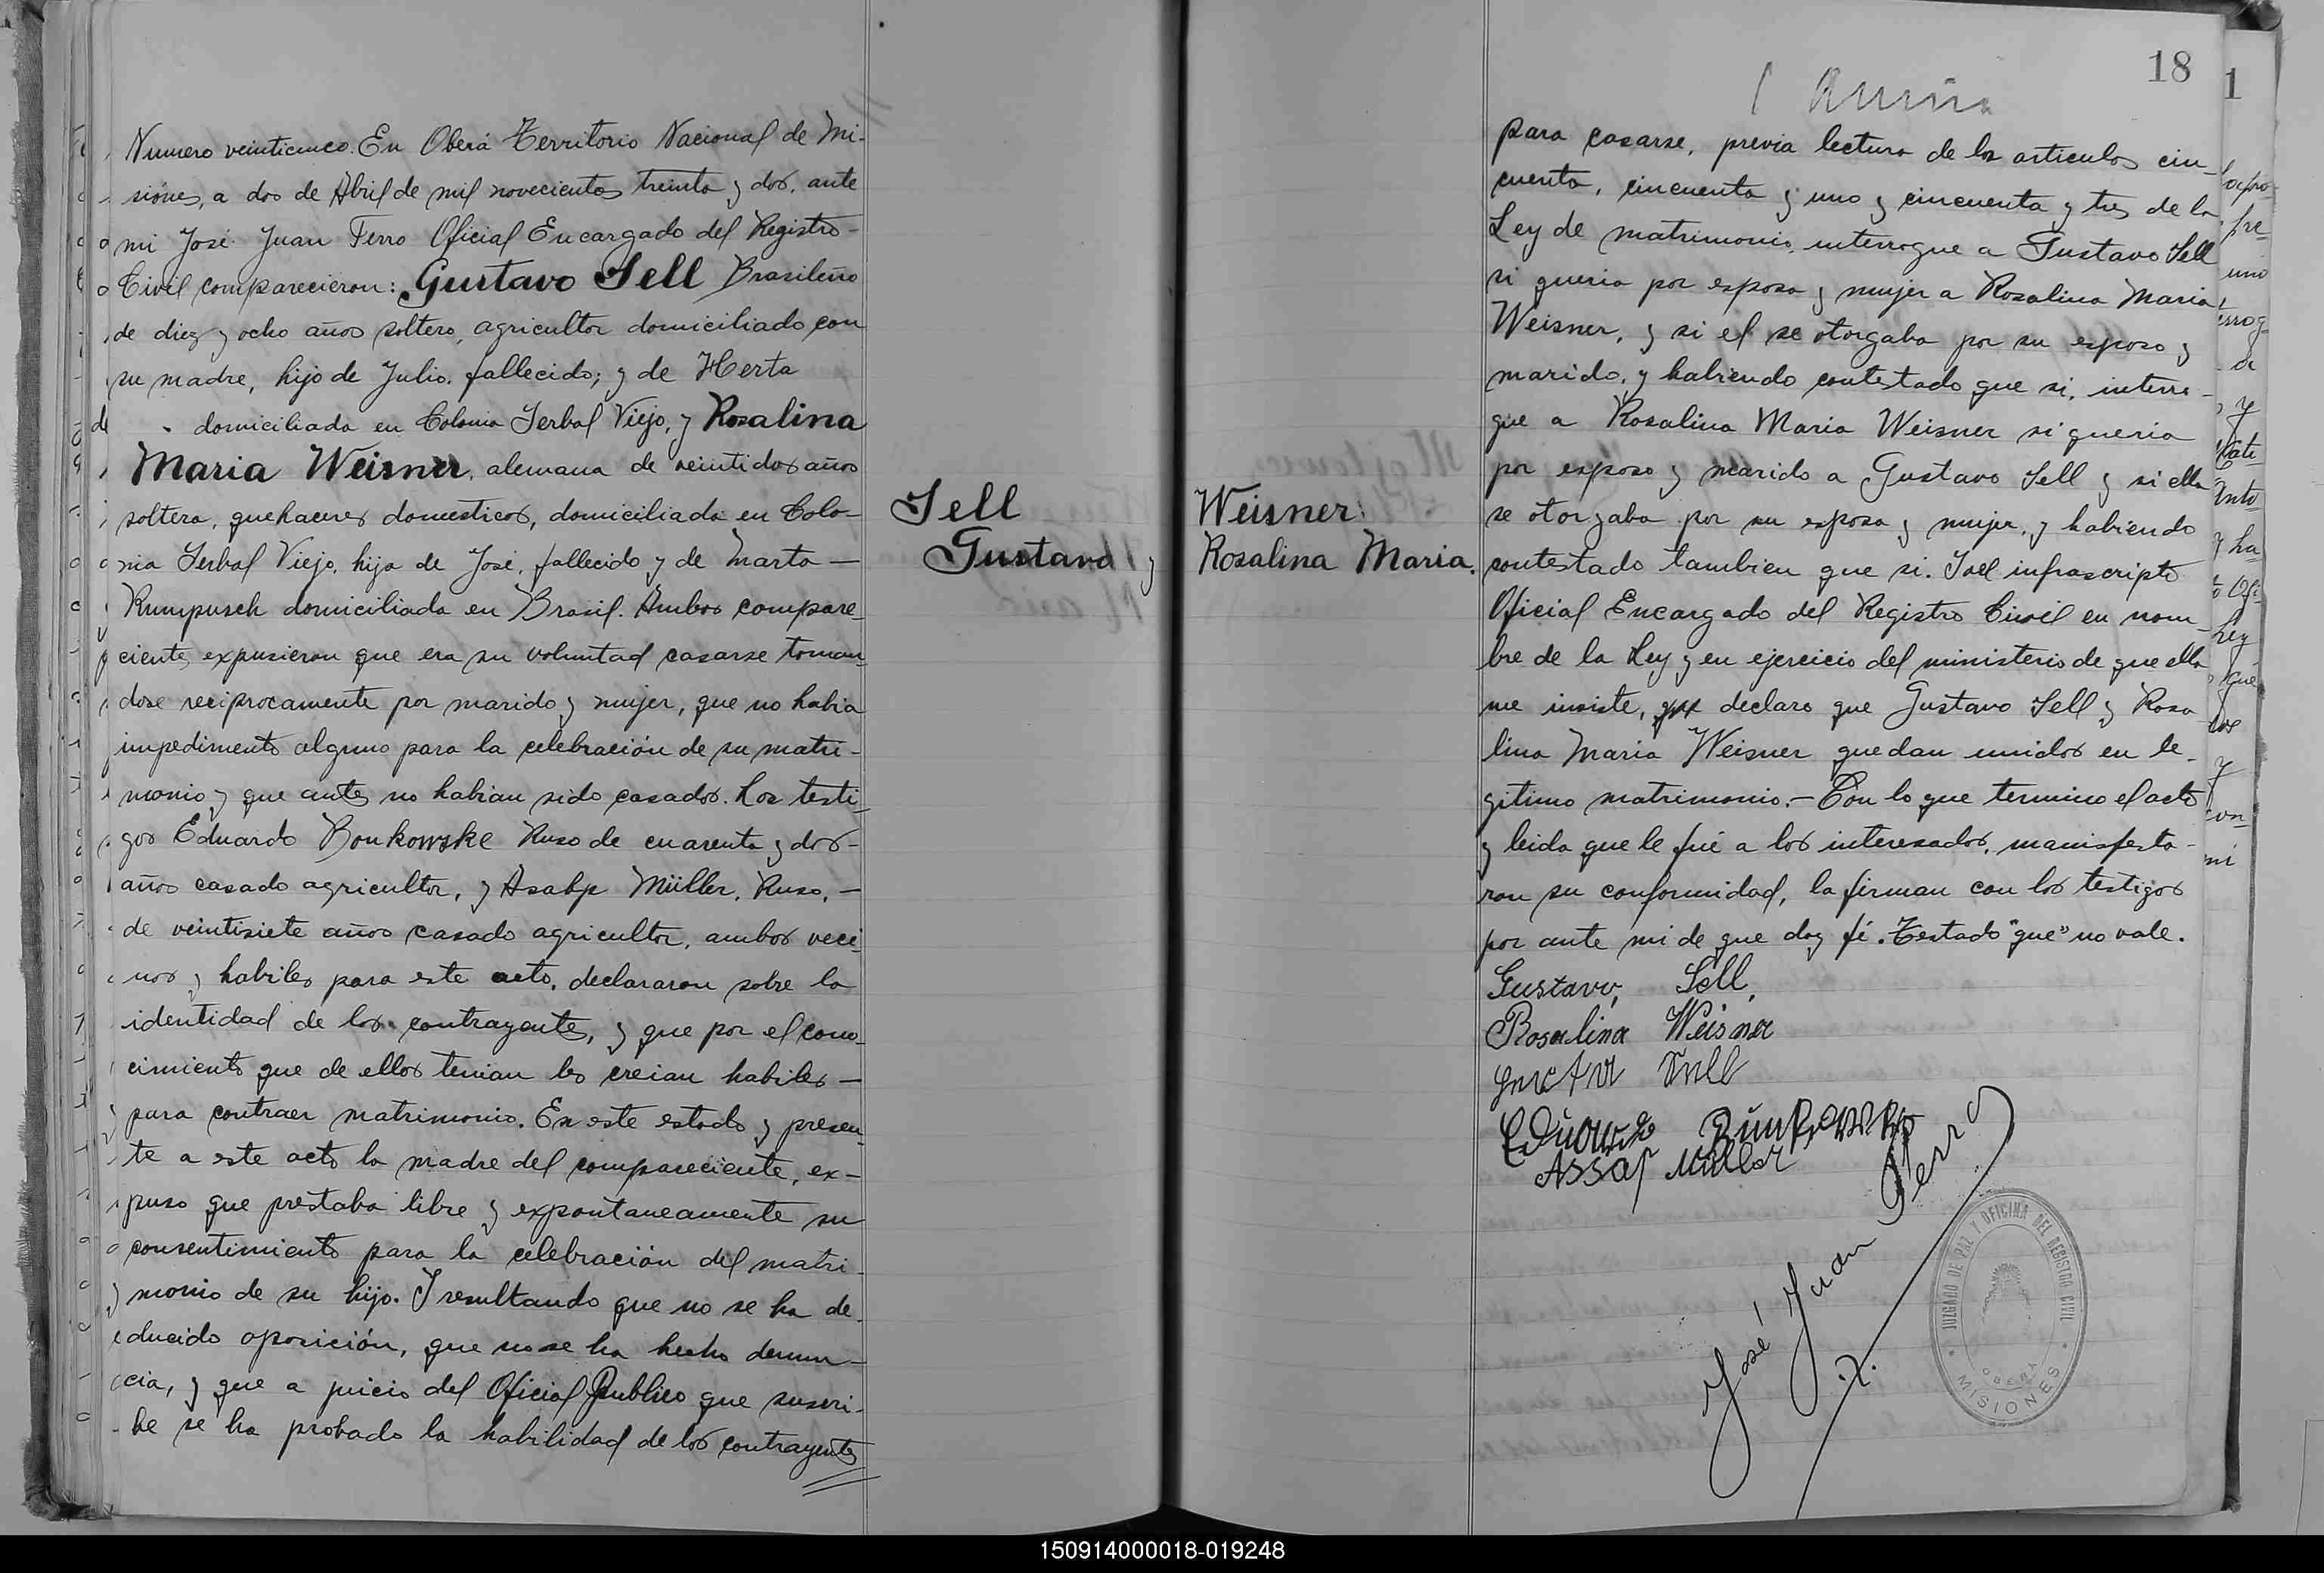 Numero veinticinco. En Oberá Territorio Nacional de Mi-
siones, a dos de Abril de mil novecientos treinta y dos, ante
mi José Juan Ferro Oficial Encargado del Registro-
Civil comparecieron: Gustavo Sell Brasileño
de diez y ocho años soltero, agricultor domiciliado con
su madre, hijo de Julio, fallecido; y de Herta
domiciliada en Colonia Yerbal Viejo, y Rosalina
Maria Weisner, alemana de veintidos años
soltera, quehaceres domesticos, domiciliada en Colo-
nia Yerbal Viejo, hija de José, fallecido y de Marta —
Rumpusch domiciliada en Brasil. Ambos compare-
cientes expusieron que era su voluntad casarse toman-
dose reciprocamente por marido y mujer, que no habia
impedimento alguno para la celebración de su matri-
monio y que antes no habian sido casados. Los testi-
gos Eduardo Bonkowske Ruso de cuarenta y dos-
años casado agricultor, y Asahp Müller, Ruso, —
de veintisiete años casado agricultor, ambos veci-
nos y habiles para este acto, declararon sobre la
identidad de los contrayentes, y que por el cono-
cimiento que de ellos tenian los creian habiles —
para contraer matrimonio. En este estado y presen-
te a este acto la madre del compareciente, ex-
puso que prestaba libre y expontaneamente su
consentimiento para la celebración del matri-
monio de su hijo. Y resultando que no se ha de-
ducido oposición, que no se ha hecho denun-
cia, y que a juicio del Oficial Publico que suscri-
be se ha probado la habilidad de los contrayentes
Sell
Gustavo y
Weisner
Rosalina Maria.
18
para casarse, previa lectura de los articulos cin-
cuenta, cincuenta y uno y cincuenta y tres de la
Ley de matrimonio, interrogue a Gustavo Sell
si queria por esposa y mujer a Rosalina Maria
Weisner, y si el se otorgaba por su esposo y
marido, y habiendo contestado que si, interro-
gue a Rosalina Maria Weisner si queria
por esposo y marido a Gustavo Sell y si ella
se otorgaba por su esposa y mujer, y habiendo
contestado tambien que si. Yo el infrascripto
Oficial Encargado del Registro Civil en nom-
bre de la Ley y en ejercicio del ministerio de que ella
me inviste, que declaro que Gustavo Sell y Rosa
lina Maria Weisner quedan unidos en le-
gitimo matrimonio.- Con lo que termino el acto
y leida que le fué a los interesados, manifesta-
ron su conformidad, la firman con los testigos
por ante mi de que doy fé. Testado "que" no vale.
Gustavo, Sell,
Rosalina Weisner
Sell
Eduardo
Assaf Müller
José Juan Ferro
JUZGADO DE PAZ Y OFICINA DEL REGISTRO CIVIL
OBERA
MISIONES
150914000018-019248